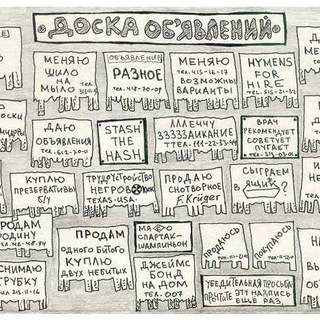 ДОСКА ОБ'ЯВЛЕНИЙ
МЕНЯЮ
ШИЛО
НА
МЫЛО
ОБЪЯВЛЕНИЕ
РАЗНОЕ
ТЕЛ. 418-70-09
МЕНЯЮ
ТЕЛ. 415-16-17
ВОЗМОЖНЫ
ВАРИАНТЫ
HYMENS
FOR
HIRE
ДАЮ
ОБЪЯВЛЕНИЯ
STASH
THE
HASH
АЛЛЕЧЧУ
ЗЗЗЗЗАИКАНИЕ
ВРАЧ
РЕКОМЕНДУЕТ
СОВЕТУЕТ
ПУГАЕТ
КУПЛЮ
ПРЕЗЕРВАТИВЫ
Б/У
ТРУДОУСТРОЙСТВО
НЕГРОВ
TEXAS. USA.
ПРОДАЮ
СНОТВОРНОЕ
F. Krüger
СЫГРАЕМ
В ЯЩИК?
ПРОДАМ
РОДИНУ
ПРОДАМ
ОДНОГО БИТОГО
КУПЛЮ
ДВУХ НЕБИТЫХ
СПАРТАК-
ШАМПИНЬОН
ПРОДАЮСЬ
ПОКУПАЮСЬ
СНИМАЮ
ТРУБКУ
ТЕЛ. 215-11-16
ДЖЕЙМС
БОНД
НА ДОМ
ТЕЛ. 007
УБЕДИТЕЛЬНАЯ ПРОСЬБА
ПРОЧТИТЕ ЭТУ НАДПИСЬ
ЕЩЁ РАЗ.